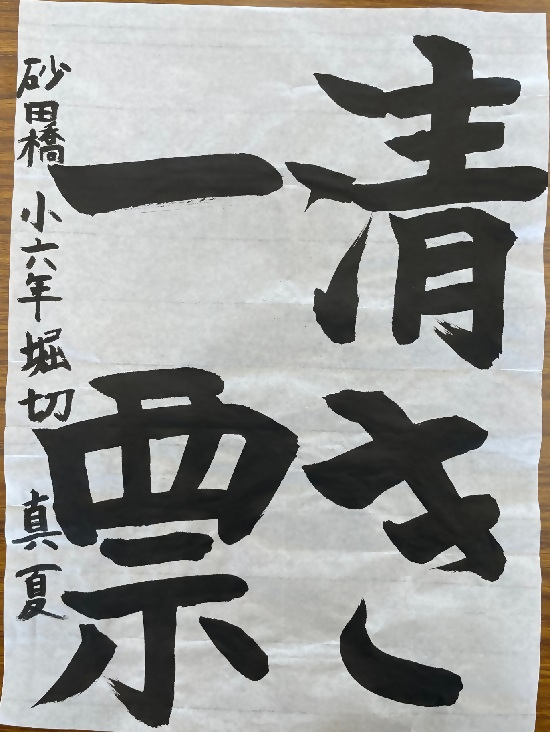 清き
一票
砂田橋 小六年 堀切 真夏